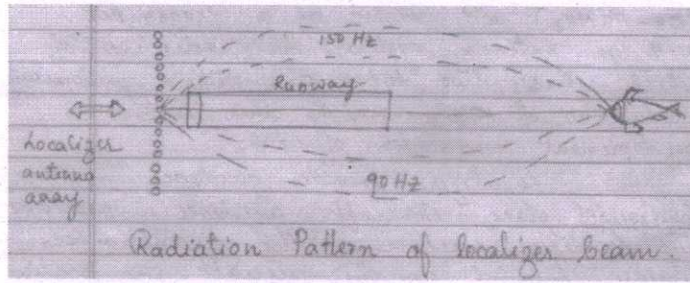 150 Hz
Runway
Localizer
antenna
array
90 Hz
Radiation Pattern of localizer beam.